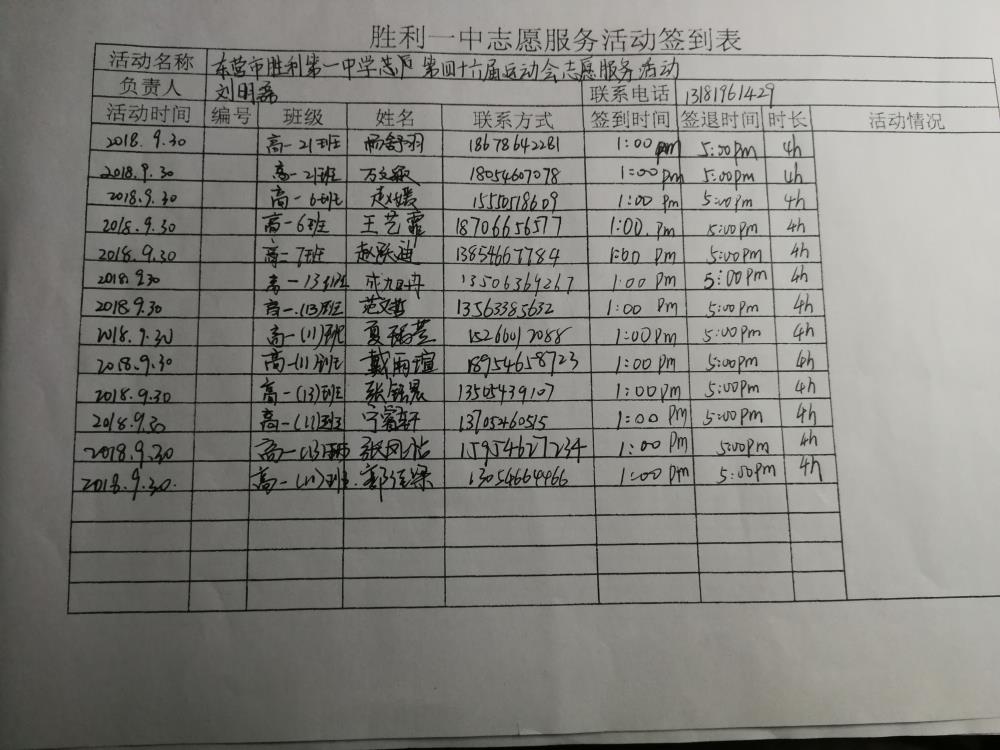 胜利一中志愿服务活动签到表
活动名称 东营市胜利第一中学志愿 第四十六届运动会志愿服务活动
负责人 刘明磊 联系电话 13181961429
活动时间 编号 班级 姓名 联系方式 签到时间 签退时间 时长 活动情况
2018.9.30 高一21班 杨舒羽 18678642281 1:00 pm 5:00pm 4h
2018.9.30 高一21班 万文敏 18054607078 1:00pm 5:00pm 4h
2018.9.30 高一6班 赵媛 15550518609 1:00 pm 5:00pm 4h
2018.9.30 高一6班 王艺霏 18706656577 1:00. pm 5:00pm 4h
2018.9.30 高一7班 赵跃迪 13854667784 1:00 pm 5:00pm 4h
2018.9.30 高一13班 成旭冉 13506364267 1:00 pm 5:00pm 4h
2018.9.30 高一(13)班 范文哲 13563385632 1:00 pm 5:00pm 4h
2018.9.30 高一(11)班 夏 15266012088 1:00pm 5:00pm 4h
2018.9.30 高一(11)班 戴雨瑄 18954658723 1:00 pm 5:00pm 4h
2018.9.30 高一(13)班 张铭晨 13505439107 1:00 pm 5:00pm 4h
2018.9.30 高一(11)班 宁睿轩 13705460515 1:00 pm 5:00pm 4h
2018.9.30 高一(13)班 张 15954627234 1:00 pm 5:00pm 4h
2018.9.30. 高一(11)班. 郭 13054664466 1:00 pm 5:00pm 4h